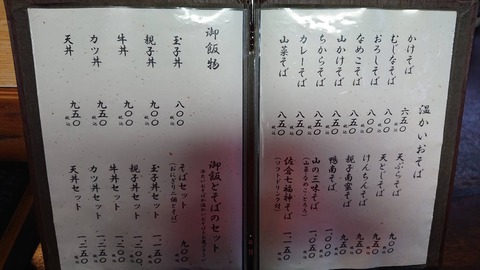 温かいおそば
かけそば 六五〇 税込
むじなそば 八〇〇 税込
おろしそば 八〇〇 税込
なめこそば 八〇〇 税込
山かけそば 八五〇 税込
ちからそば 八五〇 税込
カレーそば 八五〇 税込
山菜そば 八五〇 税込
天ぷらそば 九〇〇
天とじそば 九五〇
けんちんそば 九五〇
親子南蛮そば 九五〇
鴨南そば 一〇〇〇
山の三味そば 一〇〇〇
(山菜・なめこ・とろろ)
佐倉七福神そば 一一五〇
(ソフトドリンク付)
御飯物
玉子丼 八〇〇 税込
親子丼 九〇〇 税込
牛丼 九〇〇 税込
カツ丼 九五〇 税込
天丼 九五〇 税込
御飯とそばのセット
そばセット 九〇〇
(おにぎり二個とそば)
玉子丼セット 一一五〇
親子丼セット 一二〇〇
牛丼セット 一二〇〇
カツ丼セット 一二五〇
天丼セット 一二五〇